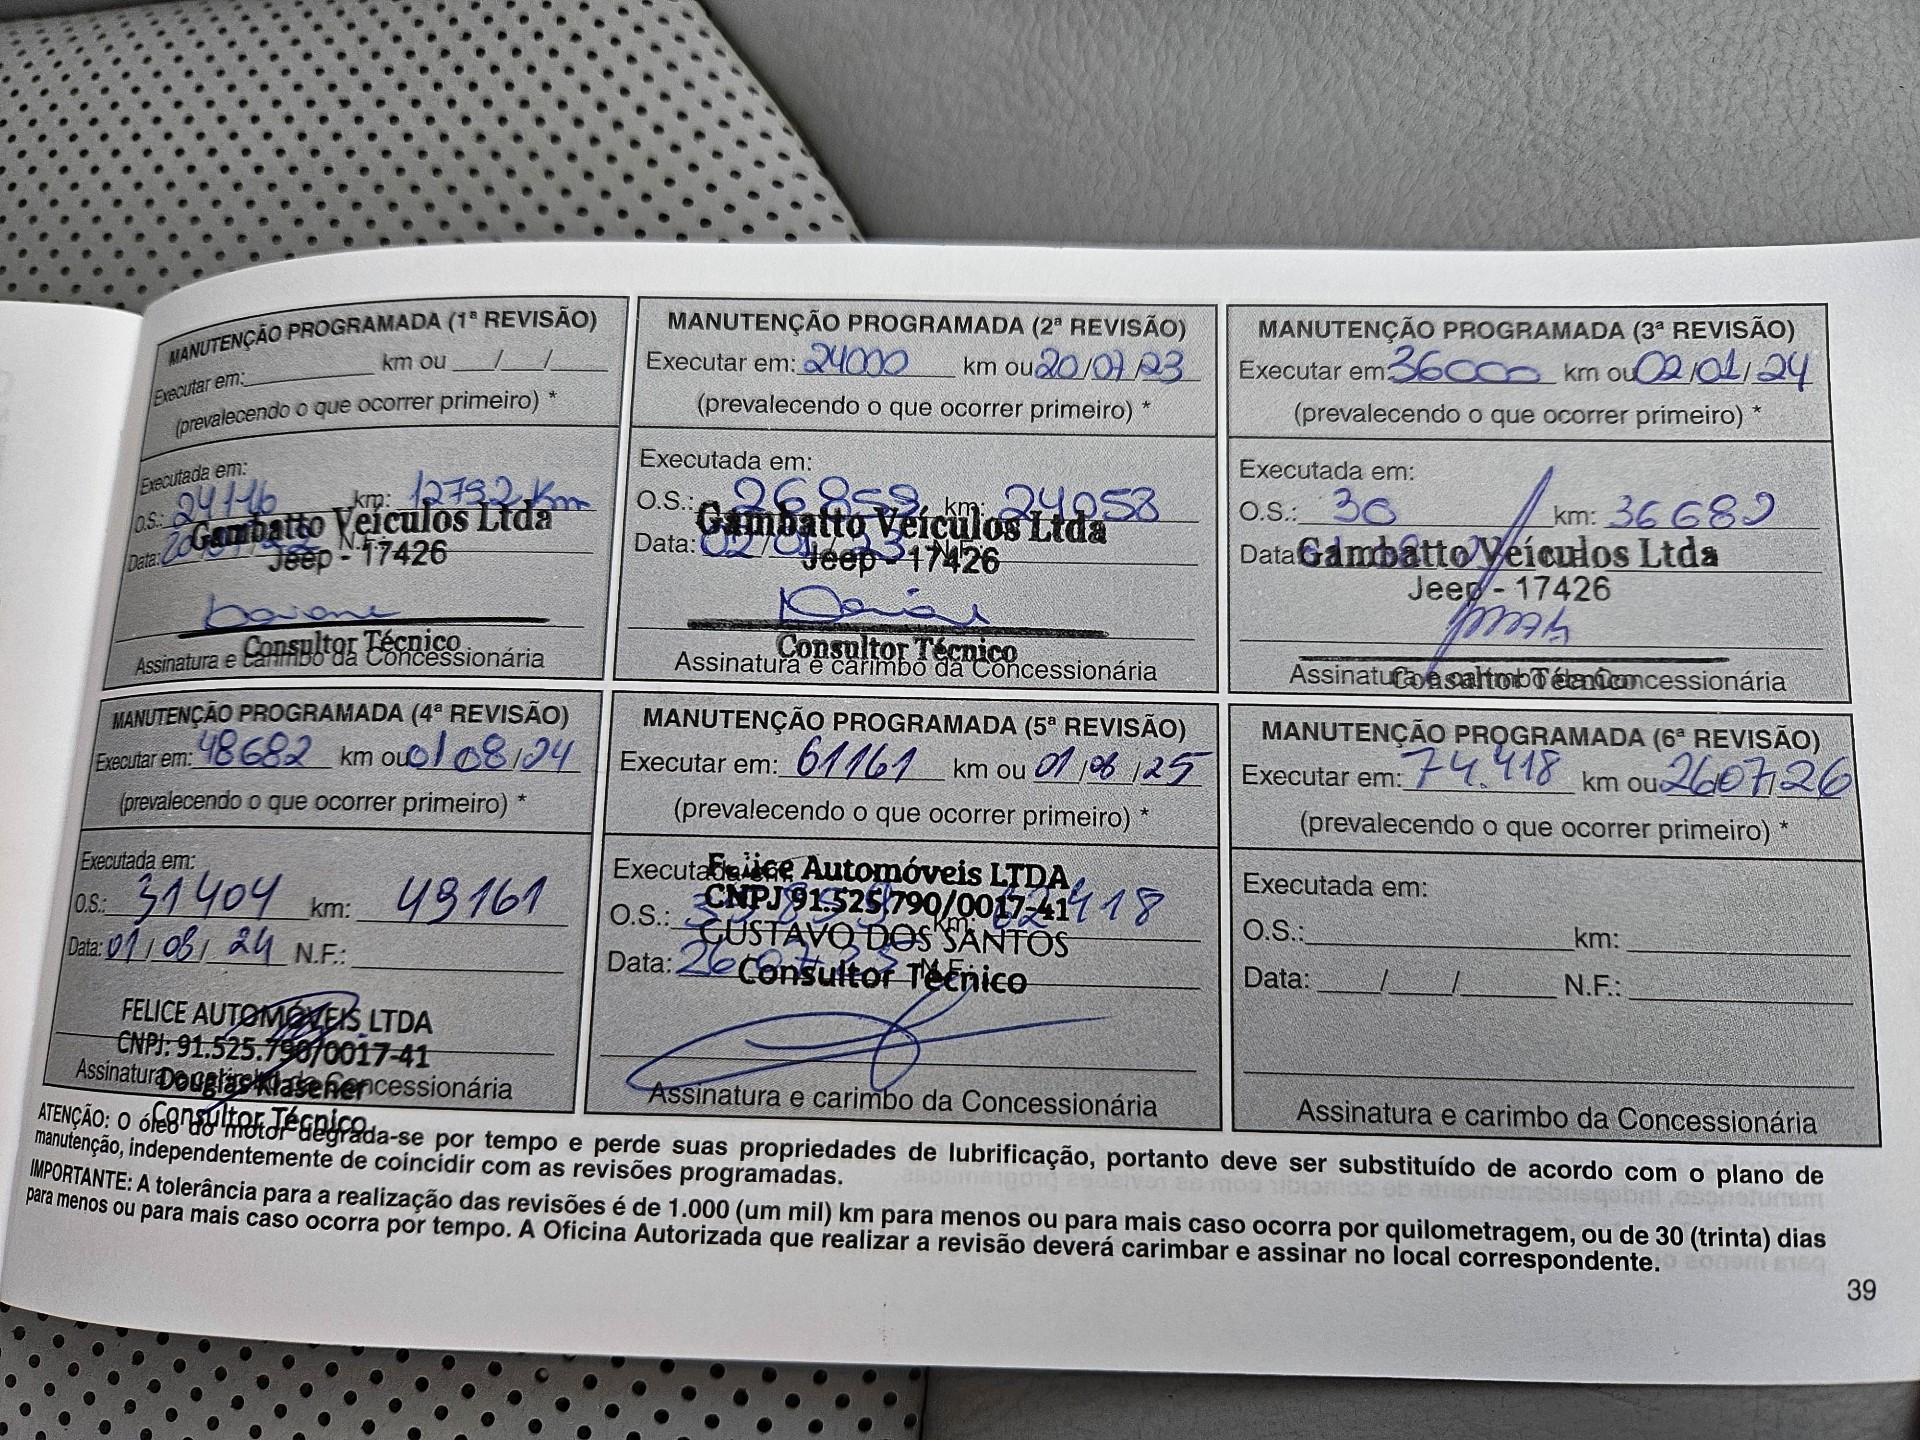 MANUTENÇÃO PROGRAMADA (1ª REVISÃO)
Executar em: km ou / /
(prevalecendo o que ocorrer primeiro) *
Executada em:
O.S.: 24116 km: 12792 Km
Data:
Gambatto Veículos Ltda
Jeep - 17426
Consultor Técnico
Assinatura e carimbo da Concessionária
MANUTENÇÃO PROGRAMADA (2ª REVISÃO)
Executar em: 24000 km ou 20/07/23
(prevalecendo o que ocorrer primeiro) *
Executada em:
O.S.: 26859 km: 24058
Data: 02/01
Gambatto Veículos Ltda
Jeep - 17426
Consultor Técnico
Assinatura e carimbo da Concessionária
MANUTENÇÃO PROGRAMADA (3ª REVISÃO)
Executar em: 36000 km ou 02/01/24
(prevalecendo o que ocorrer primeiro) *
Executada em:
O.S.: 30 km: 36682
Data:
Gambatto Veículos Ltda
Jeep - 17426
Consultor Técnico
Assinatura e carimbo da Concessionária
MANUTENÇÃO PROGRAMADA (4ª REVISÃO)
Executar em: 48682 km ou 01/08/24
(prevalecendo o que ocorrer primeiro) *
Executada em:
O.S.: 31404 km: 49161
Data: 01/08/24 N.F.:
FELICE AUTOMÓVEIS LTDA
CNPJ: 91.525.790/0017-41
Douglas Klasener
Consultor Técnico
Assinatura e carimbo da Concessionária
MANUTENÇÃO PROGRAMADA (5ª REVISÃO)
Executar em: 61161 km ou 01/08/25
(prevalecendo o que ocorrer primeiro) *
Executada em:
Felice Automóveis LTDA
CNPJ 91.525.790/0017-41
O.S.: km: 62418
GUSTAVO DOS SANTOS
Data: 26 N.F.:
Consultor Técnico
Assinatura e carimbo da Concessionária
MANUTENÇÃO PROGRAMADA (6ª REVISÃO)
Executar em: 74.418 km ou 26/07/26
(prevalecendo o que ocorrer primeiro) *
Executada em:
O.S.: km:
Data: / / N.F.:
Assinatura e carimbo da Concessionária
ATENÇÃO: O óleo do motor degrada-se por tempo e perde suas propriedades de lubrificação, portanto deve ser substituído de acordo com o plano de
manutenção, independentemente de coincidir com as revisões programadas.
IMPORTANTE: A tolerância para a realização das revisões é de 1.000 (um mil) km para menos ou para mais caso ocorra por quilometragem, ou de 30 (trinta) dias
para menos ou para mais caso ocorra por tempo. A Oficina Autorizada que realizar a revisão deverá carimbar e assinar no local correspondente.
39